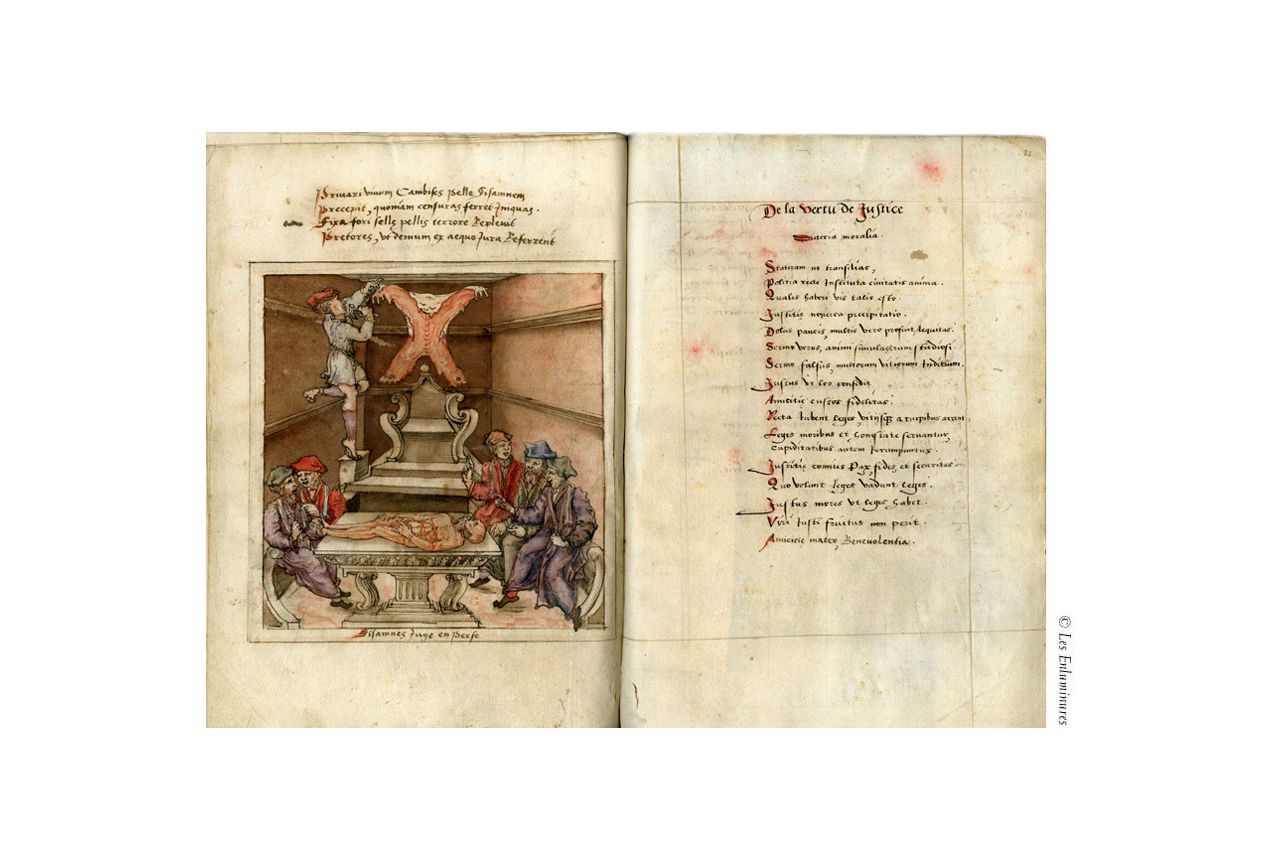 Privari vivum Cambises pelle Sisamnem
Precepit, quoniam censuras ferret Iniquas.
Fixa fori sellę pellis terrore Replevit
Pretores, vt demum ex aequo Jura Referrent
Sisamnes Juge en Perse
De la vertu de Justice
moralia.
Stateram ne transilias,
Politia recte Instituta civitatis anima.
Qualis haberi vis talis esto.
Justitie noverca precipitatio.
Dolus paucis, multis vero prosunt aequitas.
Sermo verus, animi simulacrum studiosi
Sermo falsus, multorum vitiorum Inditium.
Justus vt leo confidit
Amicitie custos fidelitas.
Recta Iubent leges, vitiisque a turpibus arcent
Leges moribus et honestate servantur,
Cupiditatibus autem Corrumpuntur.
Justitie comites Pax, fides, et securitas.
Quo volunt Reges vadunt leges.
Justus mores vt leges habet.
Viri Iusti fructus non perit.
Amicicie mater Benevolentia.
© Les Enluminures